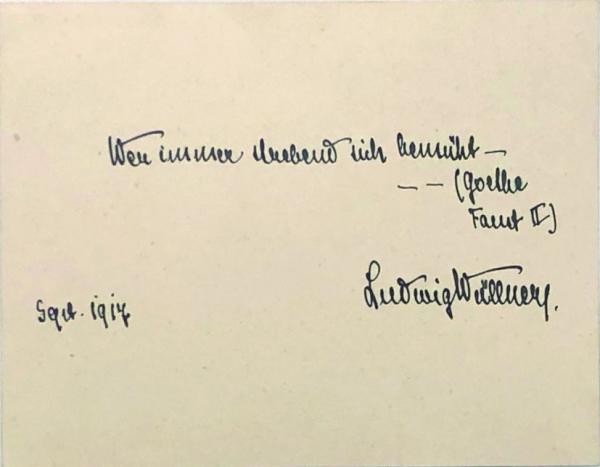 Wer immer strebend sich bemüht —
— — (Goethe
Faust II)
Ludwig Wüllner.
Sept. 1917